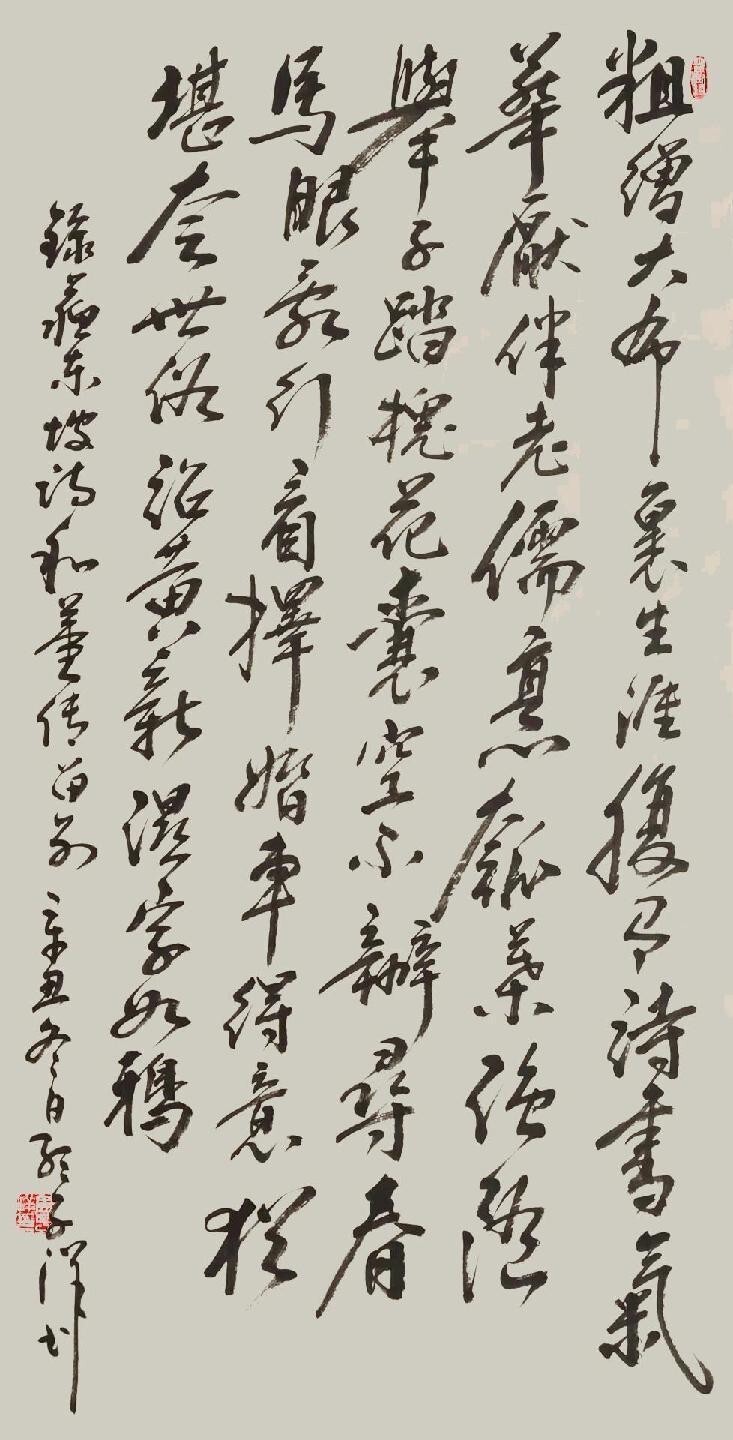 粗繒大布裹生涯腹有詩書氣
華厭伴老儒烹瓠葉強隨
舉子踏槐花囊空不辦尋春
馬眼亂行看擇婚車得意猶
堪夸世俗詔黃新濕字如鴉
錄蘇東坡詩和董传留別 辛丑冬日 子洋书